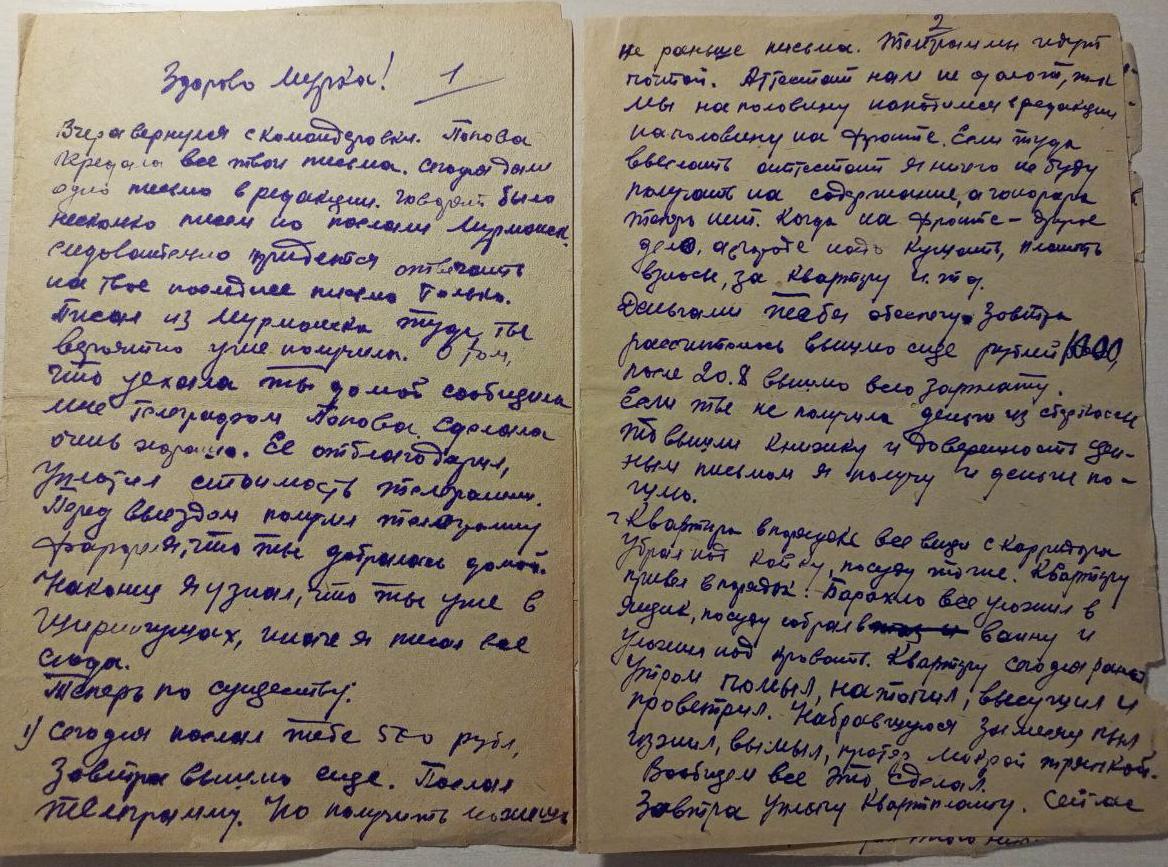 Здорово Мурка! 1
Вчера вернулся с командировки. Попова
передала все твои письма. Сегодня дали
одно письмо в редакции. Говорят было
несколько писем но послали Мурманск.
Следовательно придется отвечать
на твое последнее письмо только.
Писал из Мурманска туда, ты
вероятно уже получила. О том,
что уехала ты домой сообщила
мне телеграфом Попова. Сделала
очень хорошо. Ее отблагодарил,
уплатил стоимость телеграммы.
Перед выездом получил телеграмму
что ты добралась домой.
Наконец я узнал, что ты уже в
иначе я писал все
сюда.
Теперь по существу:
1) Сегодня послал тебе 500 рубл,
Завтра вышлю еще. Послал
телеграмму. Но получить можешь
2
не раньше письма. Телеграммы идут
почтой. Аттестат нам не дают, так
мы на половину находимся в редакции
на половину на фронте. Если туда
выслать аттестат я ничего не буду
получать на содержание, а гонорара
теперь нет. Когда на фронте - другое
дело, а в городе надо кушать, платить
взносы, за квартиру и.т.д.
Деньгами тебя обеспечу. Завтра
рассчитаюсь вышлю еще рублей 1000,
после 20.8 вышлю всю зарплату.
Если ты не получила деньги из сберкассы
то вышли книжку и доверенность цен-
ным письмом я получу и деньги по-
шлю.
Квартира в порядке все вещи с корридора
убрал под койку, посуду тоже. Квартиру
привел в порядок. Барахло все уложил в
ящик, посуду собрал в ванну и
уложил под кровать. Квартиру сегодня рано
утром помыл, натопил, высушил и
проветрил. Набравшуюся за месяц пыль
изжил, вымыл, протер мокрой тряпкой.
Вообщем все это сделал.
Завтра уплачу квартплату. Сейчас